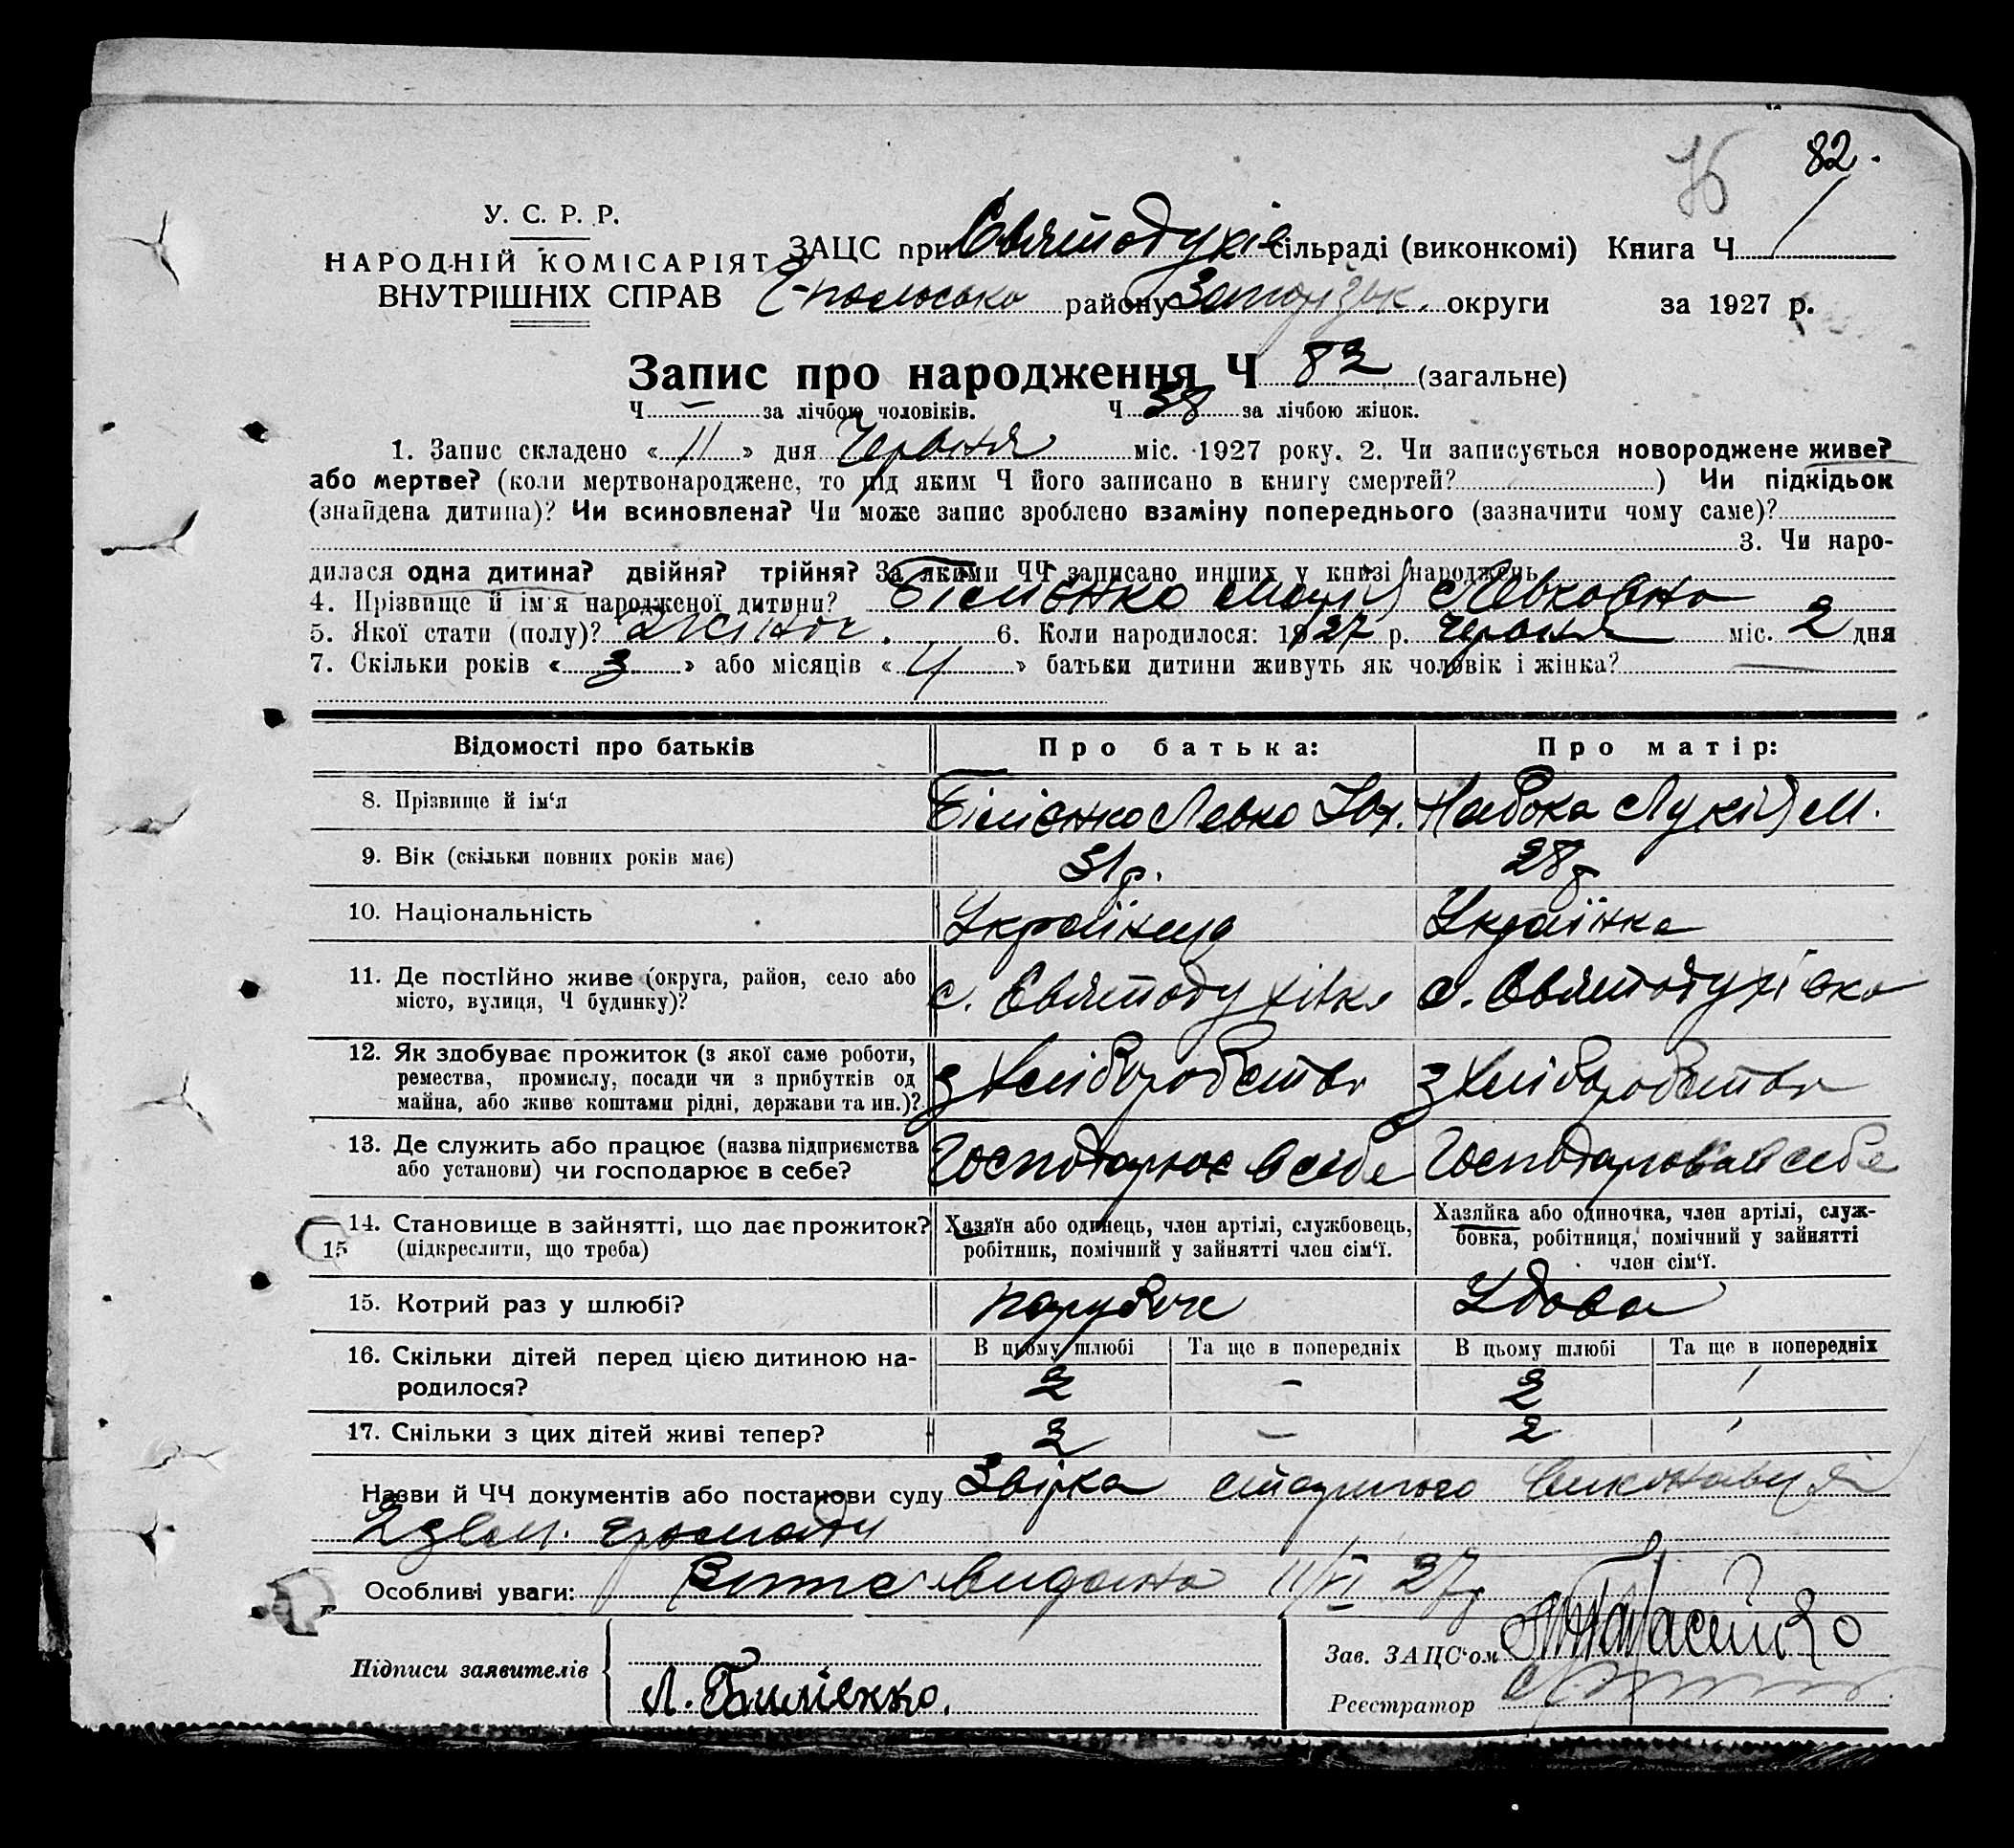 82.
У. С. Р. Р.
НАРОДНІЙ КОМІСАРІЯТ
ВНУТРІШНІХ СПРАВ
ЗАЦС при Святодухів сільраді (виконкомі) Книга Ч
району округи за 1927 р.
Запис про народження Ч 82 (загальне)
Ч. — за лічбою чоловіків. Ч. 38 за лічбою жінок.
1. Запис складено « 11 » дня Червня міс. 1927 року. 2. Чи записується новороджене живе?
або мертве? (коли мертвонароджене, то під яким Ч його записано в книгу смертей? ) Чи підкідьок
(знайдена дитина)? Чи всиновлена? Чи може запис зроблено взаміну попереднього (зазначити чому саме)?
3. Чи наро-
дилася одна дитина? двійня? трійня? За якими ЧЧ записано инших у книзі народжень
4. Прізвище й ім'я народженої дитини? Білієнко Марія Левковна
5. Якої стати (полу)? жіноч. 6. Коли народилося: 1927 р. Червня міс. 2 дня
7. Скільки років « 3 » або місяців « 4 » батьки дитини живуть як чоловік і жінка?
Відомості про батьків Про батька: Про матір:
8. Прізвище й ім'я Білієнко Левко Набока Лукія М.
9. Вік (скільки повних років має) 31 р. 28 р
10. Національність Українець Українка
11. Де постійно живе (округа, район, село або
місто, вулиця, Ч будинку)? с. Святодухівка с. Святодухівка
12. Як здобуває прожиток (з якої саме роботи,
ремества, промислу, посади чи з прибутків од
майна, або живе коштами рідні, держави та ин.)? з Хліборобства з Хліборобства
13. Де служить або працює (назва підприємства
або установи) чи господарює в себе? Господарює в себе Господарює в себе
14. Становище в зайнятті, що дає прожиток?
(підкреслити, що треба)
15
Хазяїн або одинець, член артілі, службовець,
робітник, помічний у зайнятті член сім'ї.
Хазяйка або одиночка, член артілі, служ-
бовка, робітниця, помічний у зайнятті
член сім'ї.
15. Котрий раз у шлюбі? парубок Удова
16. Скільки дітей перед цією дитиною на-
родилося?
В цьому шлюбі Та ще в попередніх В цьому шлюбі Та ще в попередніх
2 – 2
17. Скільки з цих дітей живі тепер? 2 – 2
Назви й ЧЧ документів або постанови суду Звірка старшого виконавця
2 зем. громади
Особливі уваги: видана 11/VI 27р
Підписи заявителів
Л. Билієнко.
Зав. ЗАЦС'ом
Реєстратор